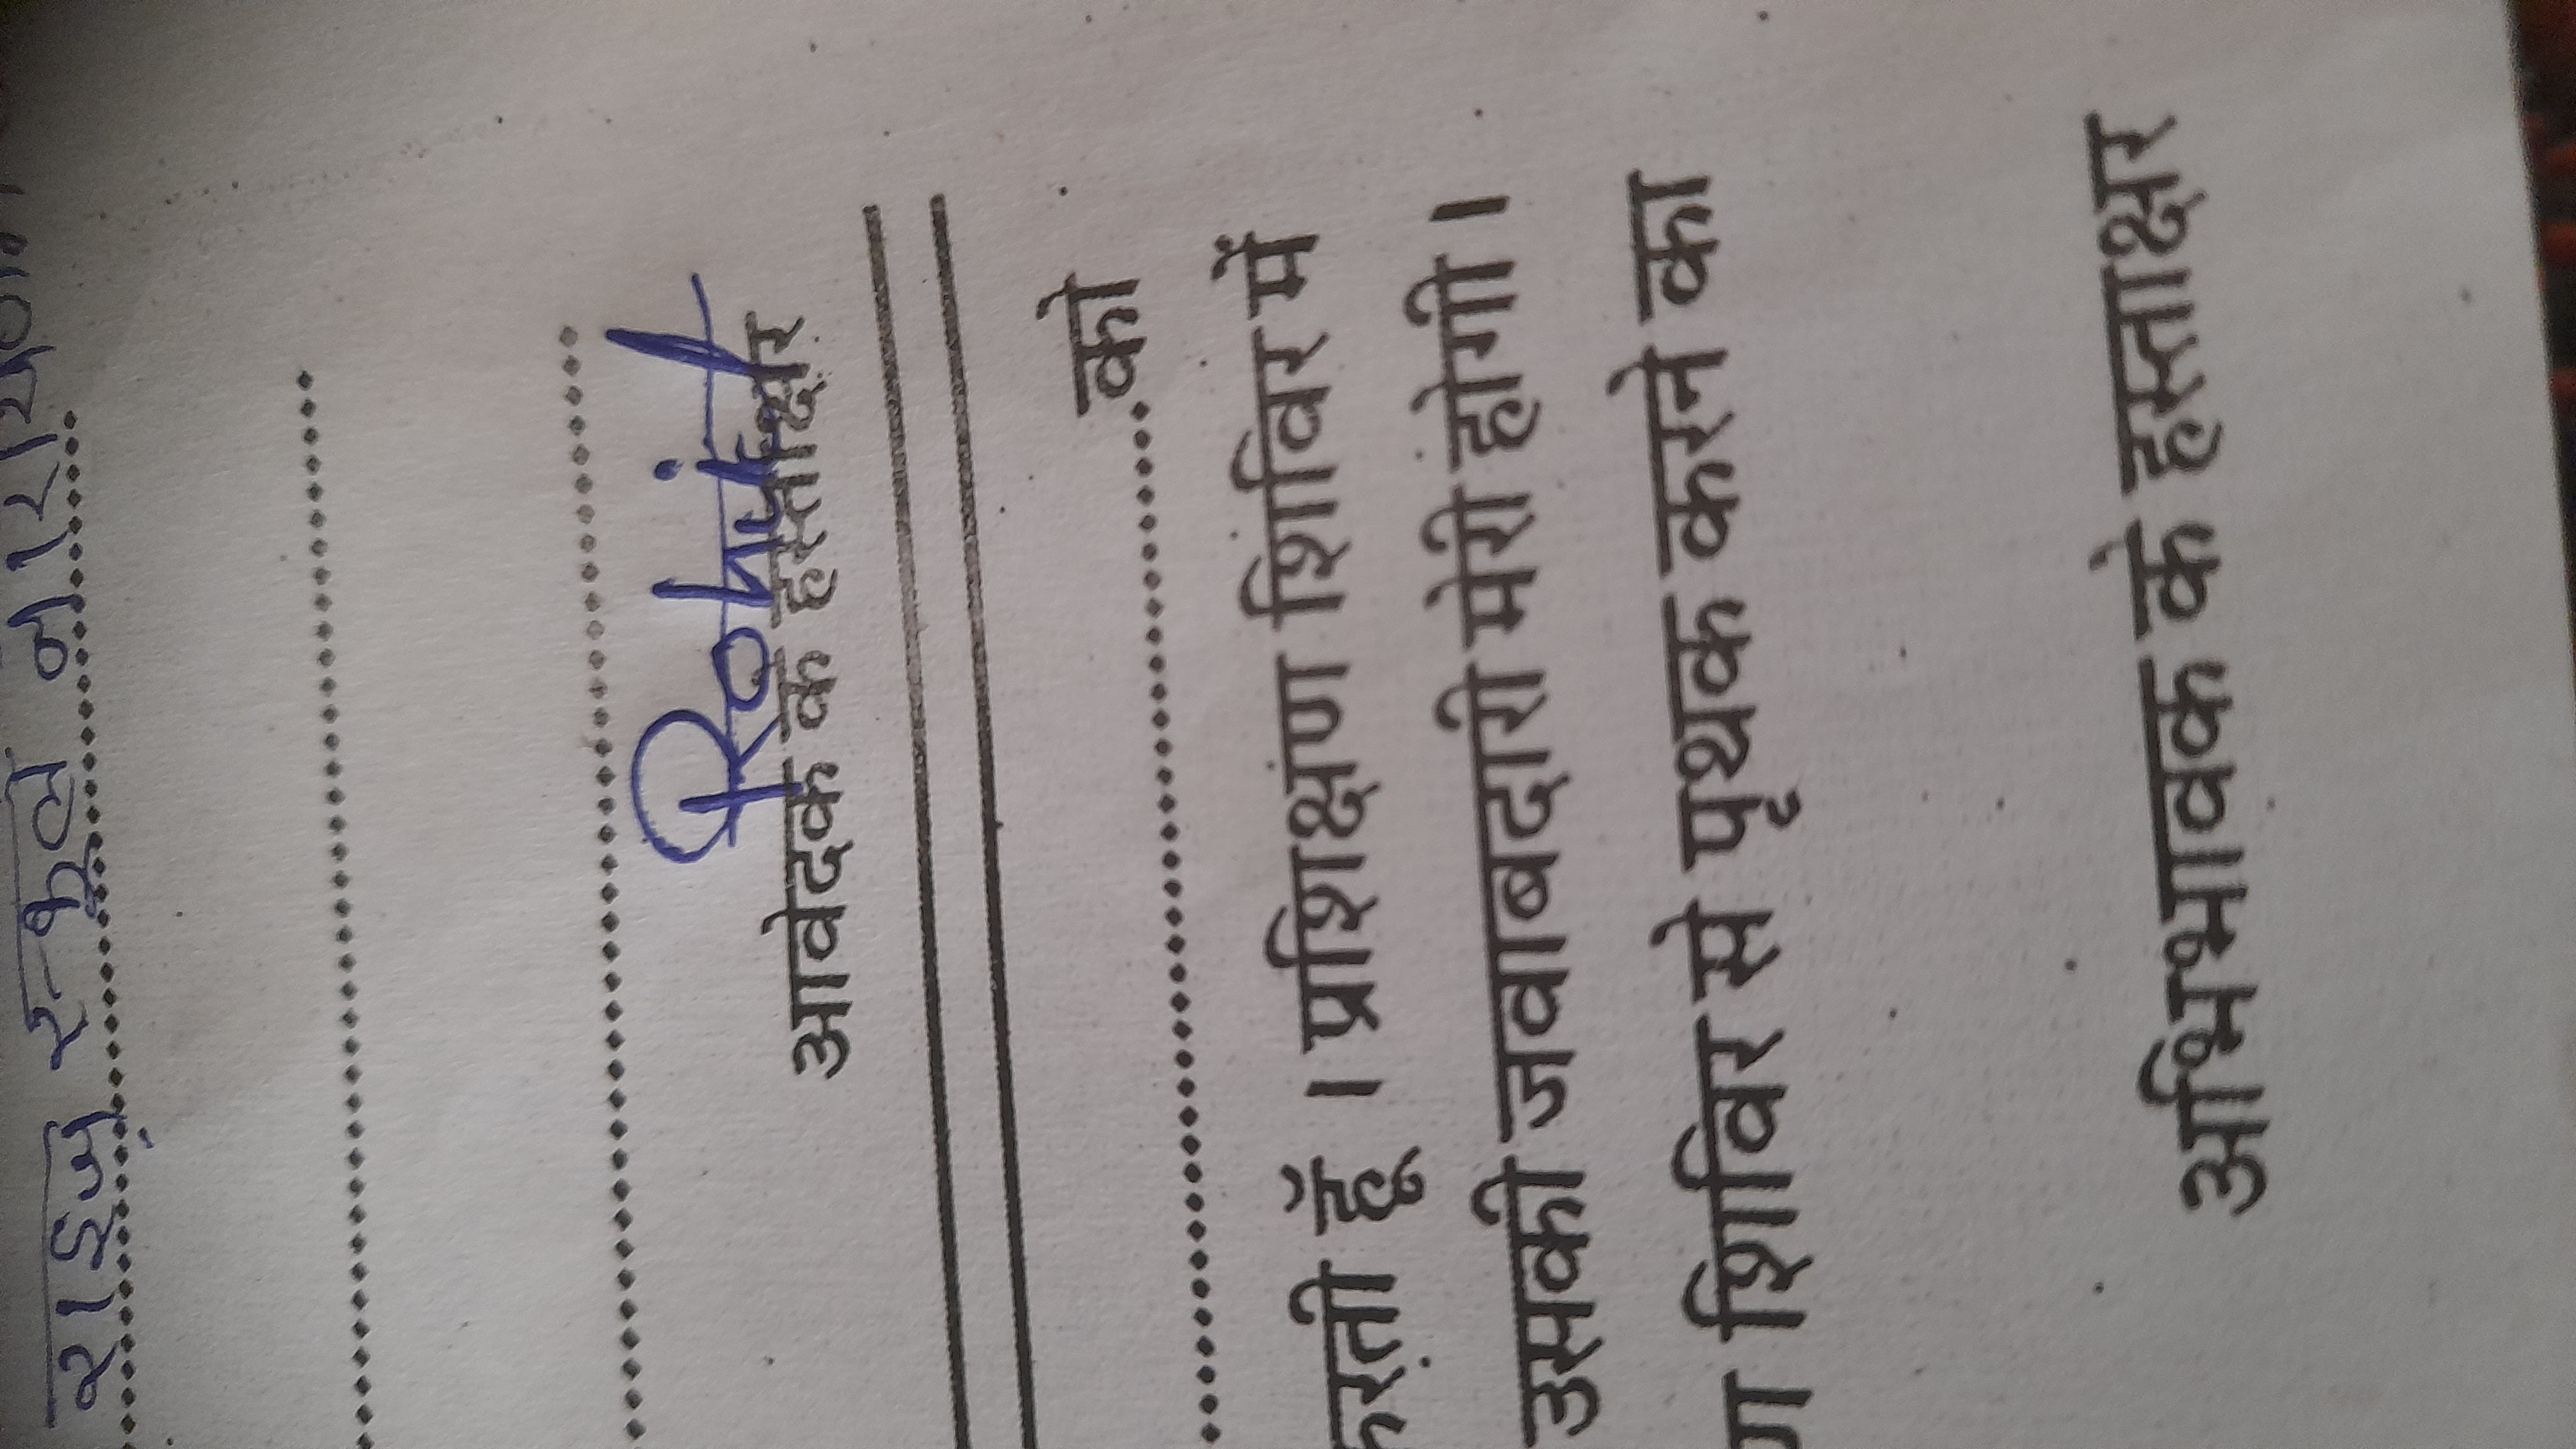 स्कूल नारायण
Rohit
आवेदक के हस्ताक्षर
को
करती हूँ । प्रशिक्षण शिविर में
उसकी जवाबदारी मेरी होगी ।
शिविर से पृथक करने का
अभिभावक के हस्ताक्षर